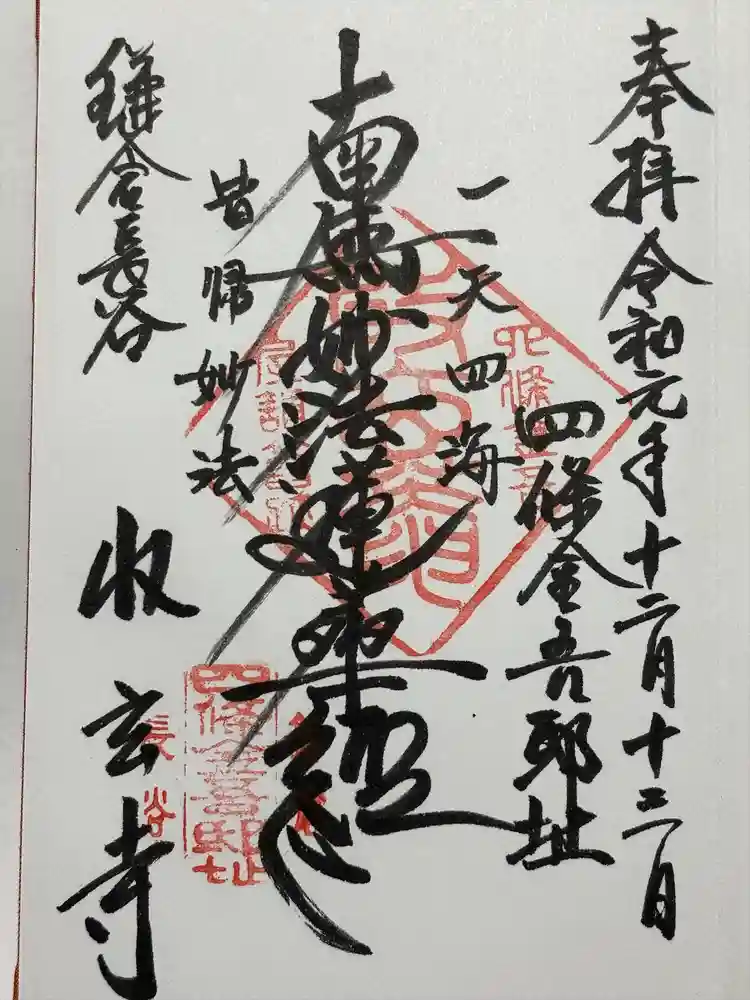 奉拝 令和元年十二月十三日
四條金吾邸址
一天四海
南無妙法蓮華経
皆帰妙法
鎌倉長谷
収玄寺
四條金吾邸址
長谷